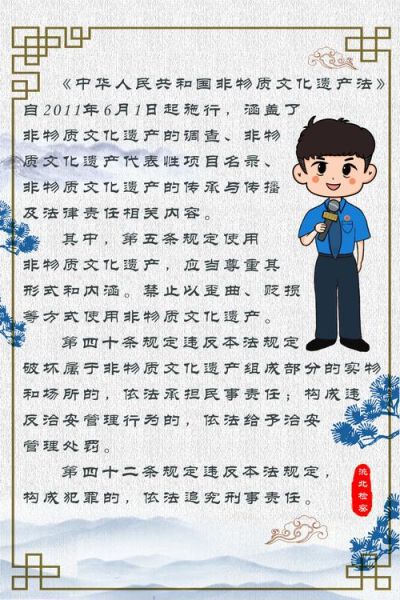 《中华人民共和国非物质文化遗产法》
自2011年6月1日起施行，涵盖了
非物质文化遗产的调查、非物
质文化遗产代表性项目名录、
非物质文化遗产的传承与传播
及法律责任相关内容。
其中，第五条规定使用
非物质文化遗产，应当尊重其
形式和内涵。禁止以歪曲、贬损
等方式使用非物质文化遗产。
第四十条规定违反本法规定
破坏属于非物质文化遗产组成部分的实物
和场所的，依法承担民事责任；构成违
反治安管理行为的，依法给予治安
管理处罚。
第四十二条规定违反本法规定，
构成犯罪的，依法追究刑事责任。
洮北检察